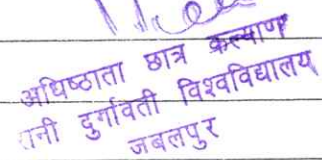 अधिष्ठाता छात्र कल्याण
रानी दुर्गावती विश्वविद्यालय
जबलपुर